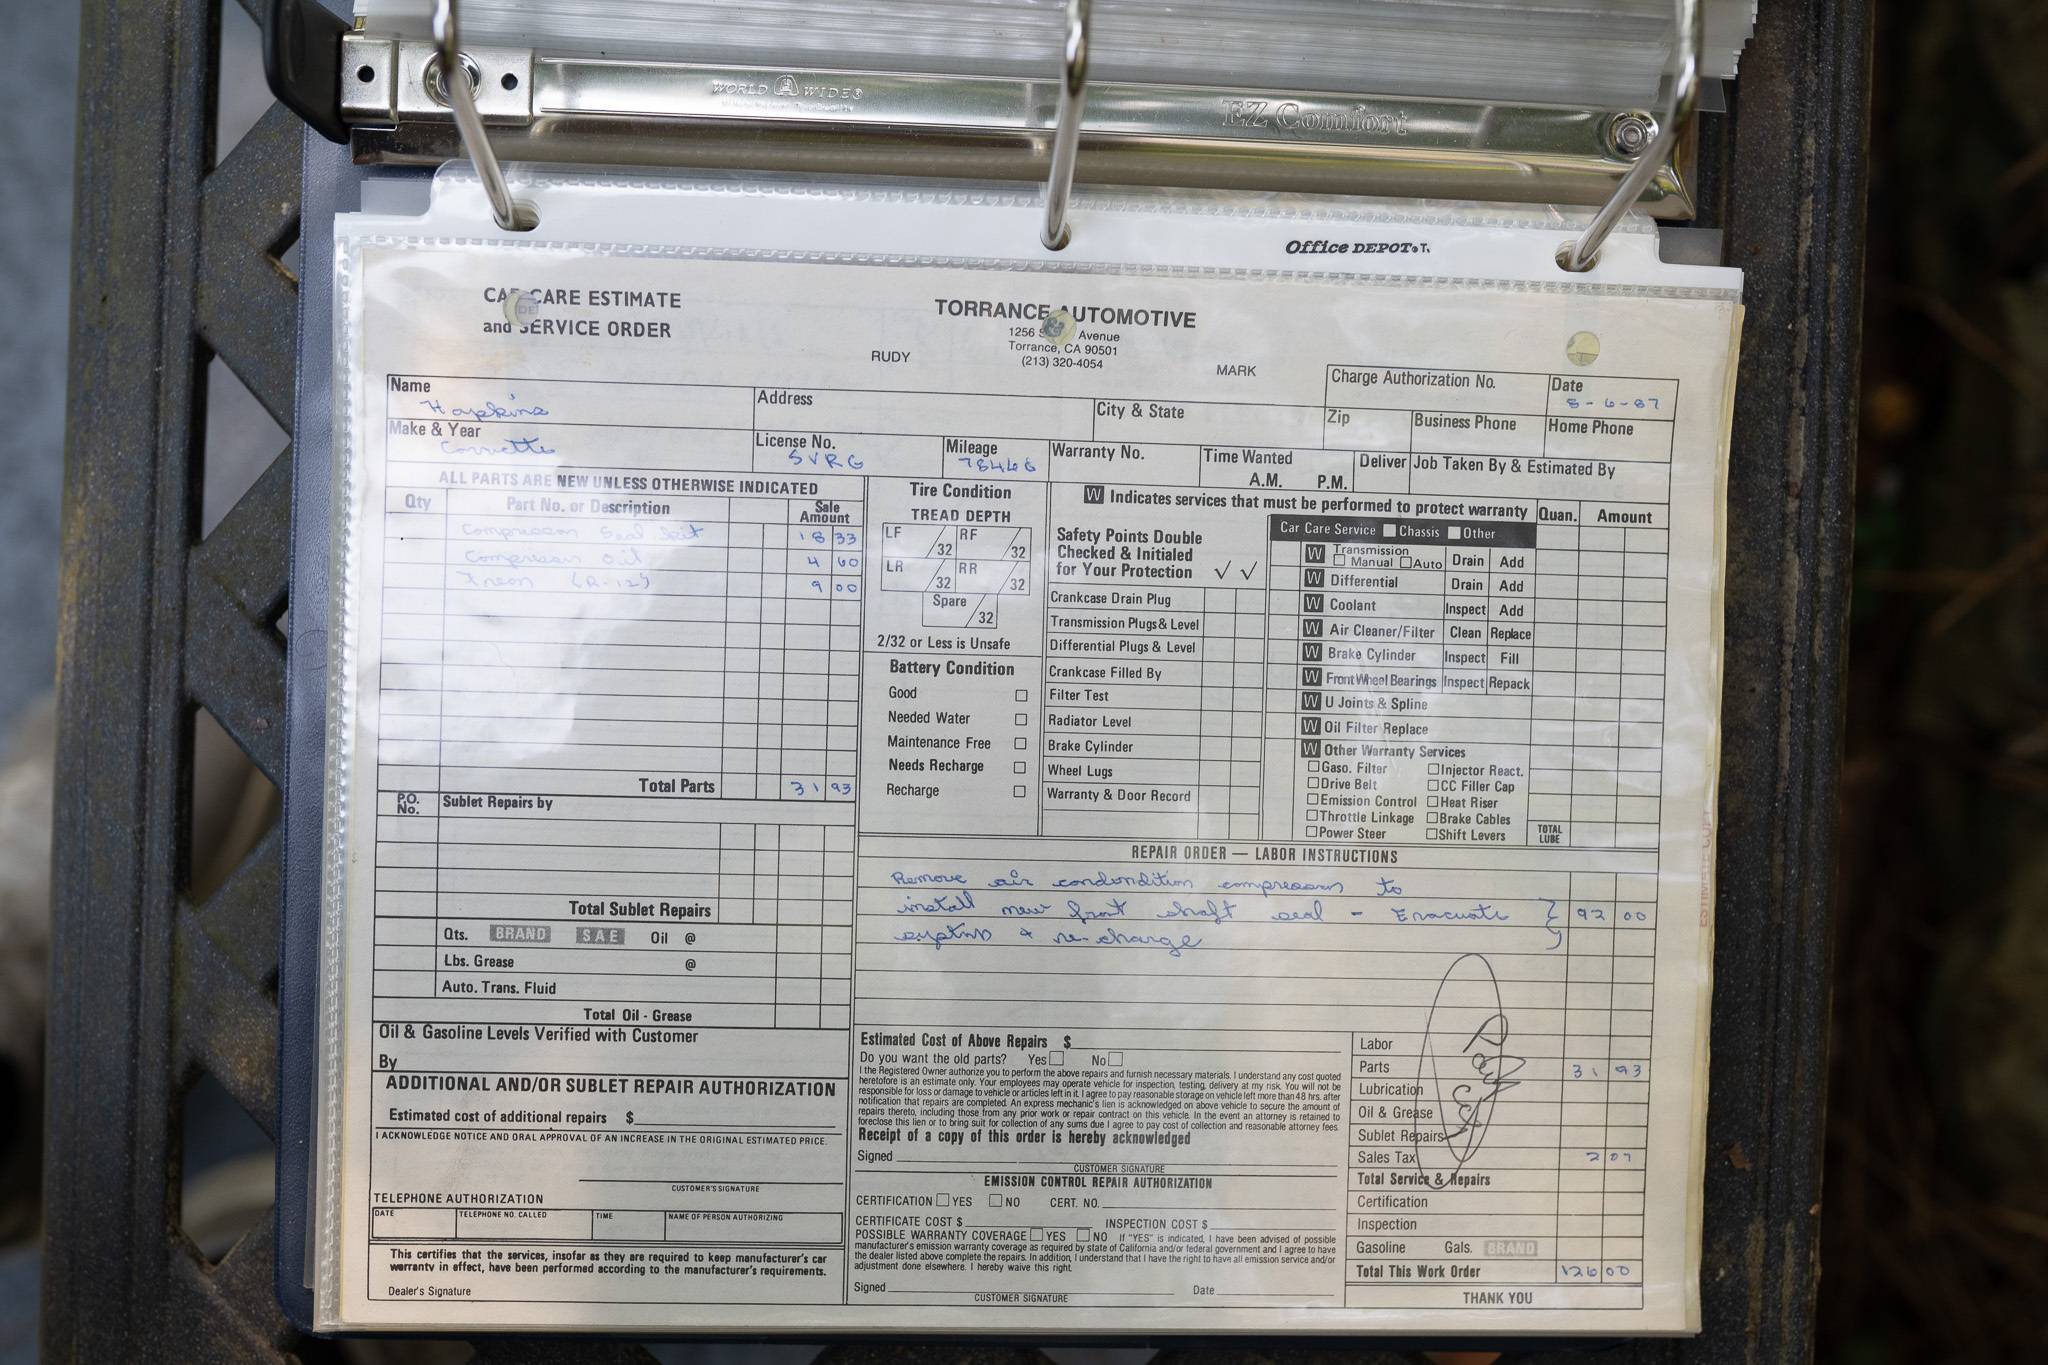 WORLD WIDE®
EZ Comfort
Office DEPOT
CAR CARE ESTIMATE
and SERVICE ORDER
TORRANCE AUTOMOTIVE
1256 Avenue
Torrance, CA 90501
(213) 320-4054
RUDY
MARK
Charge Authorization No.
Date
8-6-87
Name
Hopkins
Address
City & State
Zip
Business Phone
Home Phone
Make & Year
Corvette
License No.
SVRG
Mileage
78466
Warranty No.
Time Wanted
A.M. P.M.
Deliver
Job Taken By & Estimated By
ALL PARTS ARE NEW UNLESS OTHERWISE INDICATED
Qty Part No. or Description Sale Amount
Compressor Seal Kit 18 33
Compressor Oil 4 60
Freon (R-12) 9 00
Total Parts 31 93
P.O. No. Sublet Repairs by
Total Sublet Repairs
Qts. BRAND SAE Oil @
Lbs. Grease @
Auto. Trans. Fluid
Total Oil - Grease
Oil & Gasoline Levels Verified with Customer
By
ADDITIONAL AND/OR SUBLET REPAIR AUTHORIZATION
Estimated cost of additional repairs $
I ACKNOWLEDGE NOTICE AND ORAL APPROVAL OF AN INCREASE IN THE ORIGINAL ESTIMATED PRICE.
CUSTOMER'S SIGNATURE
TELEPHONE AUTHORIZATION
DATE TELEPHONE NO. CALLED TIME NAME OF PERSON AUTHORIZING
This certifies that the services, insofar as they are required to keep manufacturer's car
warranty in effect, have been performed according to the manufacturer's requirements.
Dealer's Signature
Tire Condition
TREAD DEPTH
LF /32 RF /32
LR /32 RR /32
Spare /32
2/32 or Less is Unsafe
Battery Condition
Good
Needed Water
Maintenance Free
Needs Recharge
Recharge
W Indicates services that must be performed to protect warranty
Quan. Amount
Safety Points Double
Checked & Initialed
for Your Protection ✓ ✓
Crankcase Drain Plug
Transmission Plugs & Level
Differential Plugs & Level
Crankcase Filled By
Filter Test
Radiator Level
Brake Cylinder
Wheel Lugs
Warranty & Door Record
Car Care Service Chassis Other
W Transmission Manual Auto Drain Add
W Differential Drain Add
W Coolant Inspect Add
W Air Cleaner/Filter Clean Replace
W Brake Cylinder Inspect Fill
W Front Wheel Bearings Inspect Repack
W U Joints & Spline
W Oil Filter Replace
W Other Warranty Services
Gaso. Filter Injector React.
Drive Belt CC Filler Cap
Emission Control Heat Riser
Throttle Linkage Brake Cables
Power Steer Shift Levers
TOTAL LUBE
REPAIR ORDER — LABOR INSTRUCTIONS
Remove air condondition compressor to
install new front shaft seal - Evacuate 92 00
systm & re-charge
Estimated Cost of Above Repairs $
Do you want the old parts? Yes No
I the Registered Owner authorize you to perform the above repairs and furnish necessary materials. I understand any cost quoted
heretofore is an estimate only. Your employees may operate vehicle for inspection, testing, delivery at my risk. You will not be
responsible for loss or damage to vehicle or articles left in it. I agree to pay reasonable storage on vehicle left more than 48 hrs. after
notification that repairs are completed. An express mechanic's lien is acknowledged on above vehicle to secure the amount of
repairs thereto, including those from any prior work or repair contract on this vehicle. In the event an attorney is retained to
foreclose this lien or to bring suit for collection of any sums due I agree to pay cost of collection and reasonable attorney fees.
Receipt of a copy of this order is hereby acknowledged
Signed
CUSTOMER SIGNATURE
EMISSION CONTROL REPAIR AUTHORIZATION
CERTIFICATION YES NO CERT. NO.
CERTIFICATE COST $ INSPECTION COST $
POSSIBLE WARRANTY COVERAGE YES NO If "YES" is indicated, I have been advised of possible
manufacturer's emission warranty coverage as required by state of California and/or federal government and I agree to have
the dealer listed above complete the repairs. In addition, I understand that I have the right to have all emission service and/or
adjustment done elsewhere. I hereby waive this right.
Signed Date
CUSTOMER SIGNATURE
Labor
Parts 31 93
Lubrication
Oil & Grease
Sublet Repairs
Sales Tax 2 07
Total Service & Repairs
Certification
Inspection
Gasoline Gals. BRAND
Total This Work Order 126 00
THANK YOU
ESTIMATE COPY